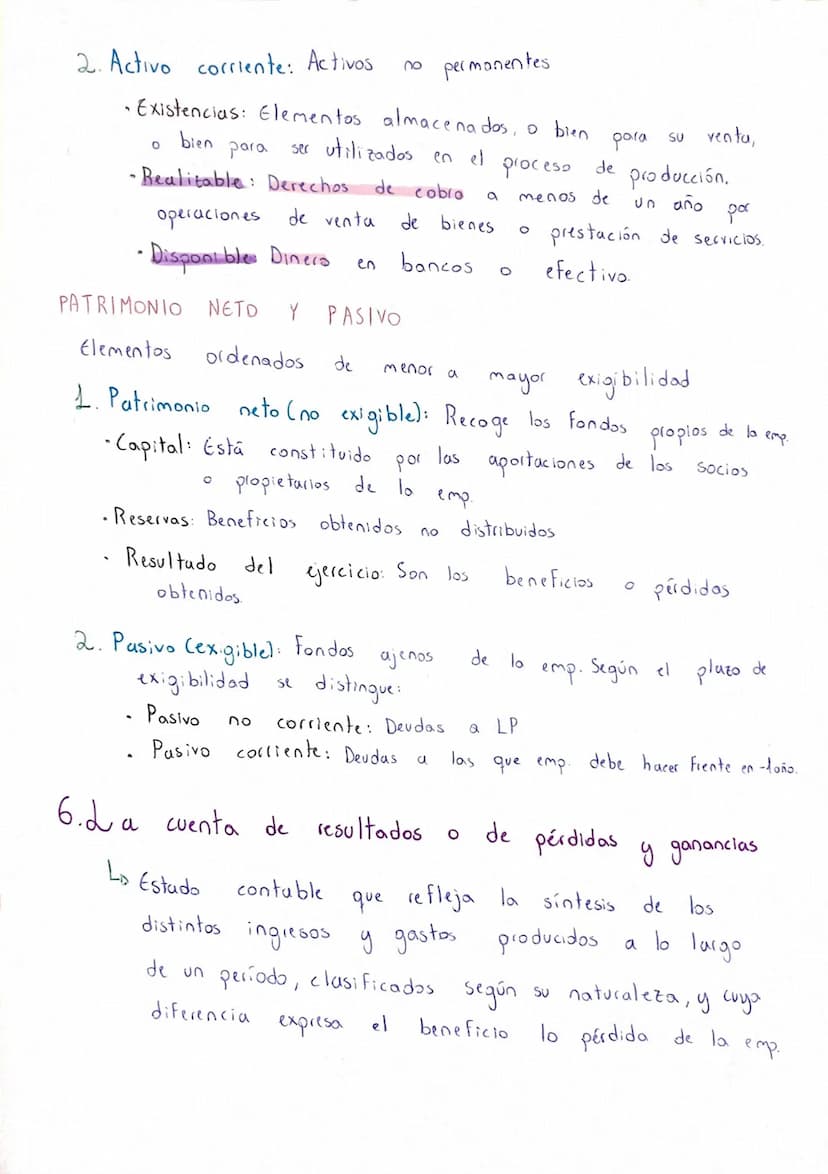 2. Activo corriente: Activos no permanentes
· Existencias: Elementos almacenados, o bien para su venta,
o bien para ser utilizados en el proceso de producción.
· Realizable: Derechos de cobro a menos de un año por
operaciones de venta de bienes o prestación de servicios.
· Disponible: Dinero en bancos o efectivo.
PATRIMONIO NETO Y PASIVO
Elementos ordenados de menor a mayor exigibilidad
1. Patrimonio neto (no exigible): Recoge los fondos propios de la emp.
· Capital: Está constituido por las aportaciones de los socios
o propietarios de la emp.
· Reservas: Beneficios obtenidos no distribuidos
· Resultado del ejercicio: Son los beneficios o pérdidas
obtenidos.
2. Pasivo (exigible): Fondos ajenos de la emp. Según el plazo de
exigibilidad se distingue:
· Pasivo no corriente: Deudas a LP
· Pasivo corriente: Deudas a las que emp. debe hacer frente en -1año.
6. La cuenta de resultados o de pérdidas y ganancias
↳ Estado contable que refleja la síntesis de los
distintos ingresos y gastos producidos a lo largo
de un período, clasificados según su naturaleza, y cuya
diferencia expresa el beneficio lo pérdida de la emp.